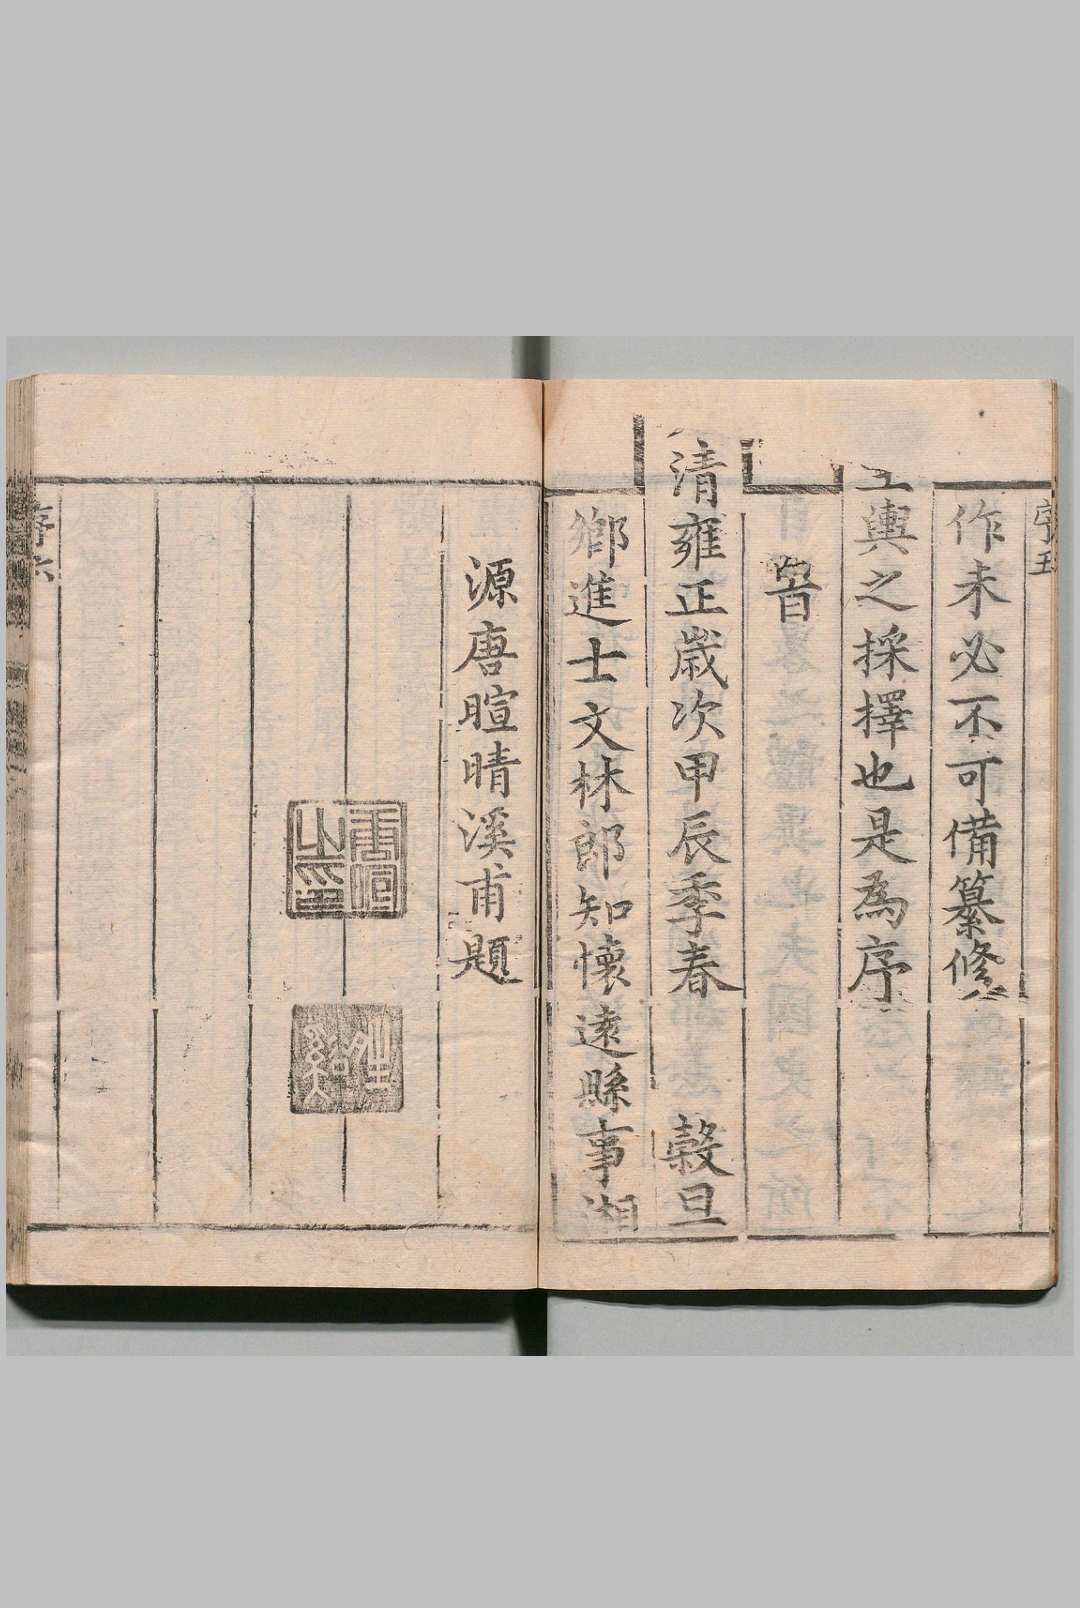 序五
作未必不可備纂修
輿之採擇也是為序
旹
清雍正歲次甲辰季春 穀旦
鄉進士文林郎知懷遠縣事湘
源唐暄晴溪甫題
唐暄之印
序六